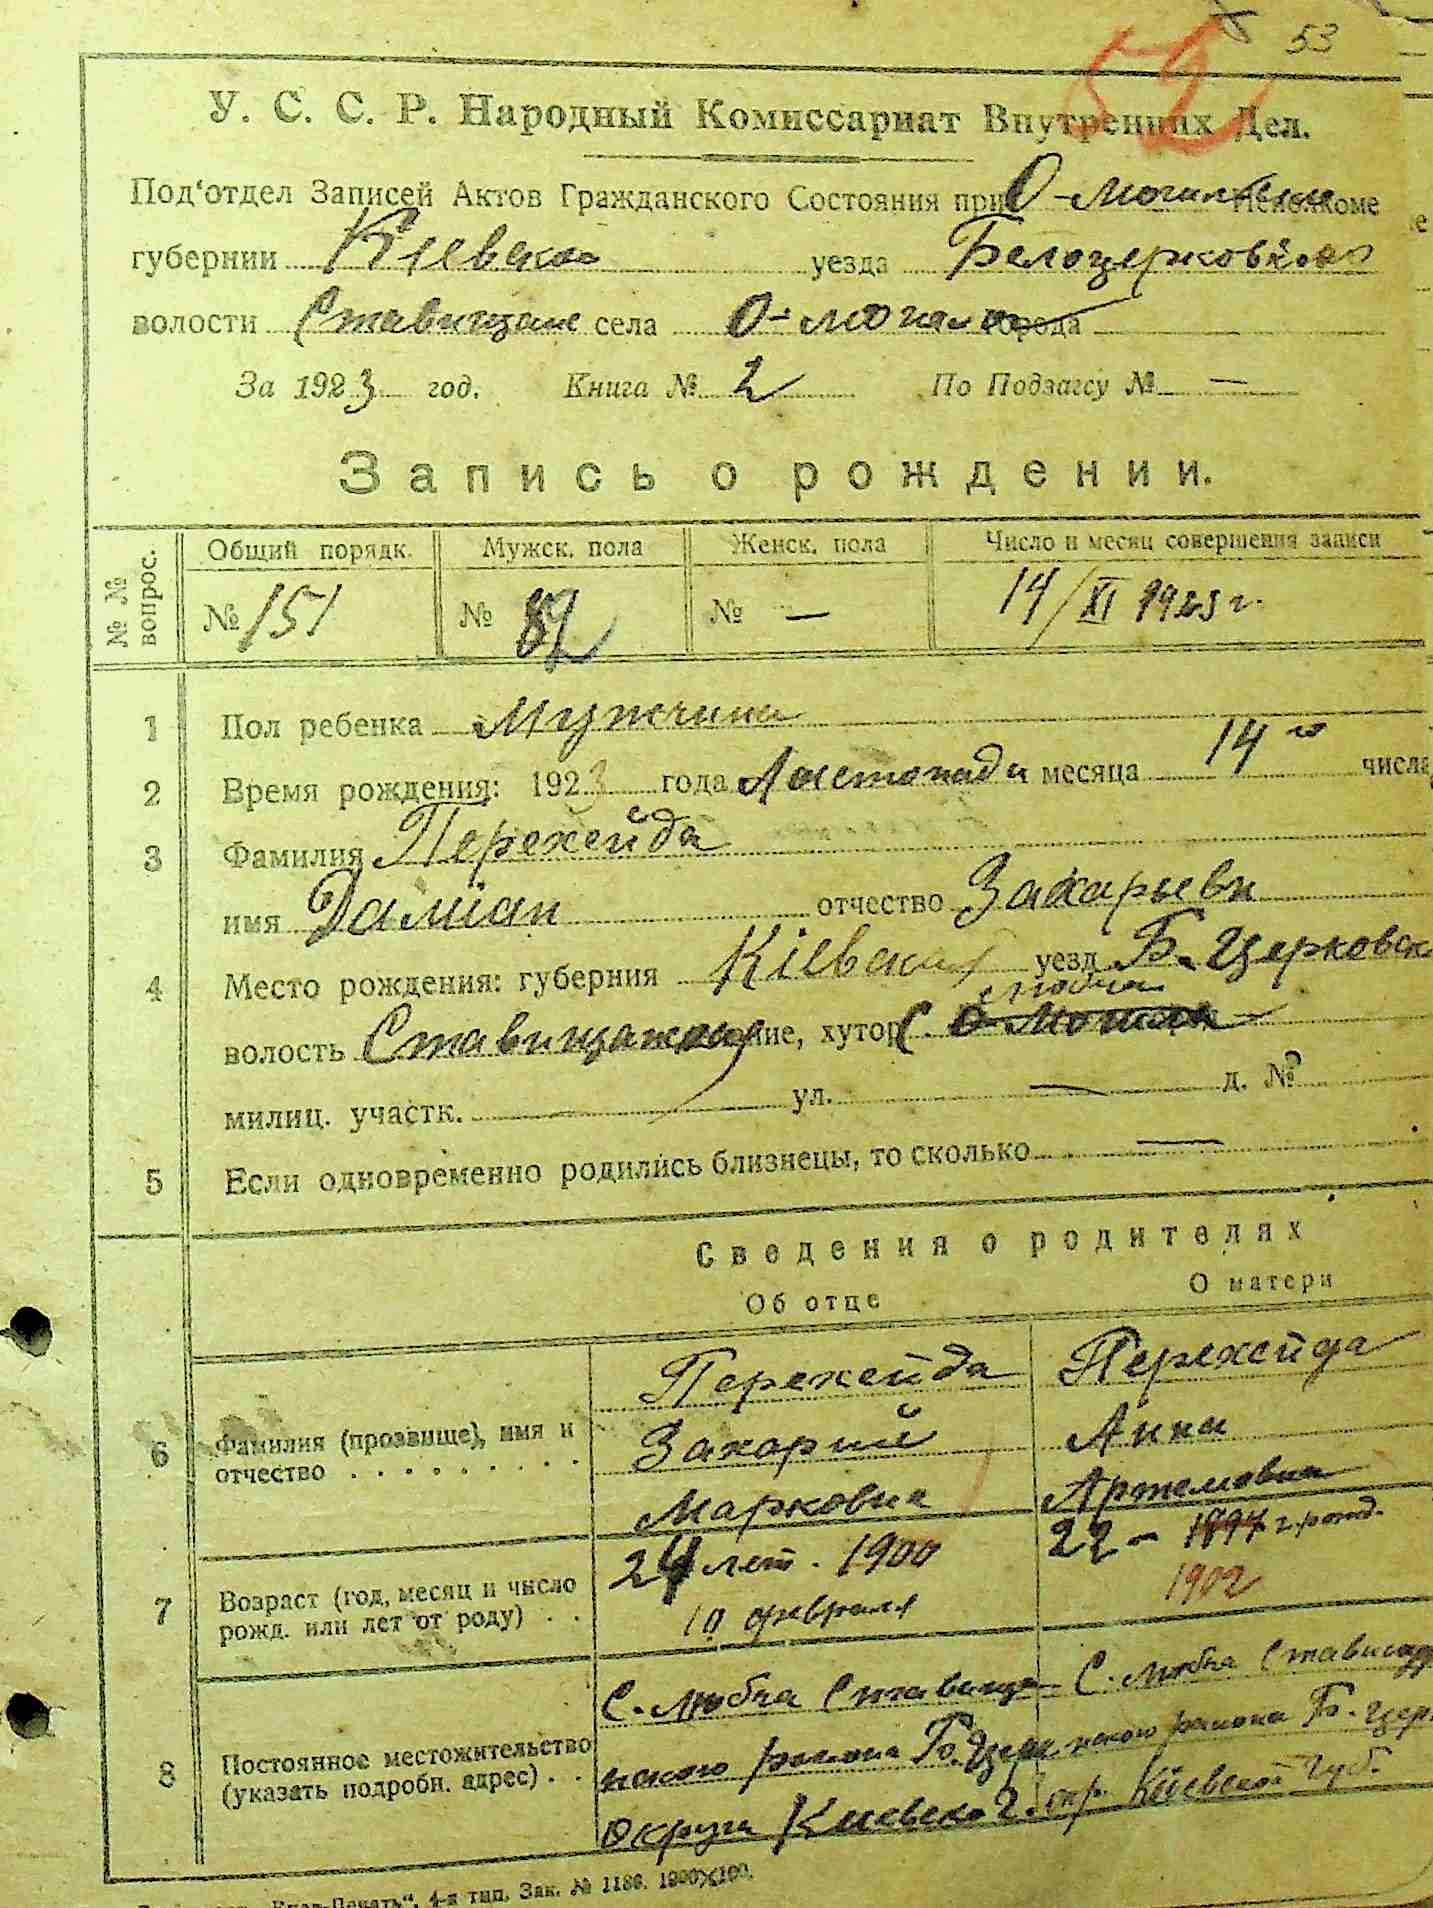 53
52
У. С. С. Р. Народный Комиссариат Внутренних Дел.
Под'отдел Записей Актов Гражданского Состояния при О-Могильском Исполкоме
губернии Киевской уезда Белоцерковской
волости Ставищанс села О-Могила города
За 1923 год. Книга № 2 По Подзагсу № —
Запись о рождении.
№ № вопрос. Общий порядк. Мужск. пола Женск. пола Число и месяц совершения записи
№ 151 № 82 № — 14/XI 1923 г.
1 Пол ребенка Мужчина
2 Время рождения: 1923 года Листопада месяца 14го числа
3 Фамилия Перехейда
имя Даміан отчество Захарьевич
4 Место рождения: губерния Кіевская уезд Б. Церковск
Любча
волость Ставищанская хутор С. О-Могила
милиц. участк. — ул. — д. №
5 Если одновременно родились близнецы, то сколько —
Сведения о родителях
Об отце О матери
Перехейда Перехейда
6 Фамилия (прозвище), имя и Захарий Анна
отчество Маркович Артемовна
24 лет. 1900 22 – 1897 г. рожд.
7 Возраст (год, месяц и число 10 февраля 1902
рожд. или лет от роду)
С. Любча Ставища- С. Любча Ставищан
8 Постоянное местожительство нского района Б. Цер нского района Б. Цер
(указать подробн. адрес) Округа Киевско г. окр. Кіевской Губ.
4-я тип. Зак. № 1186. 1000×100.